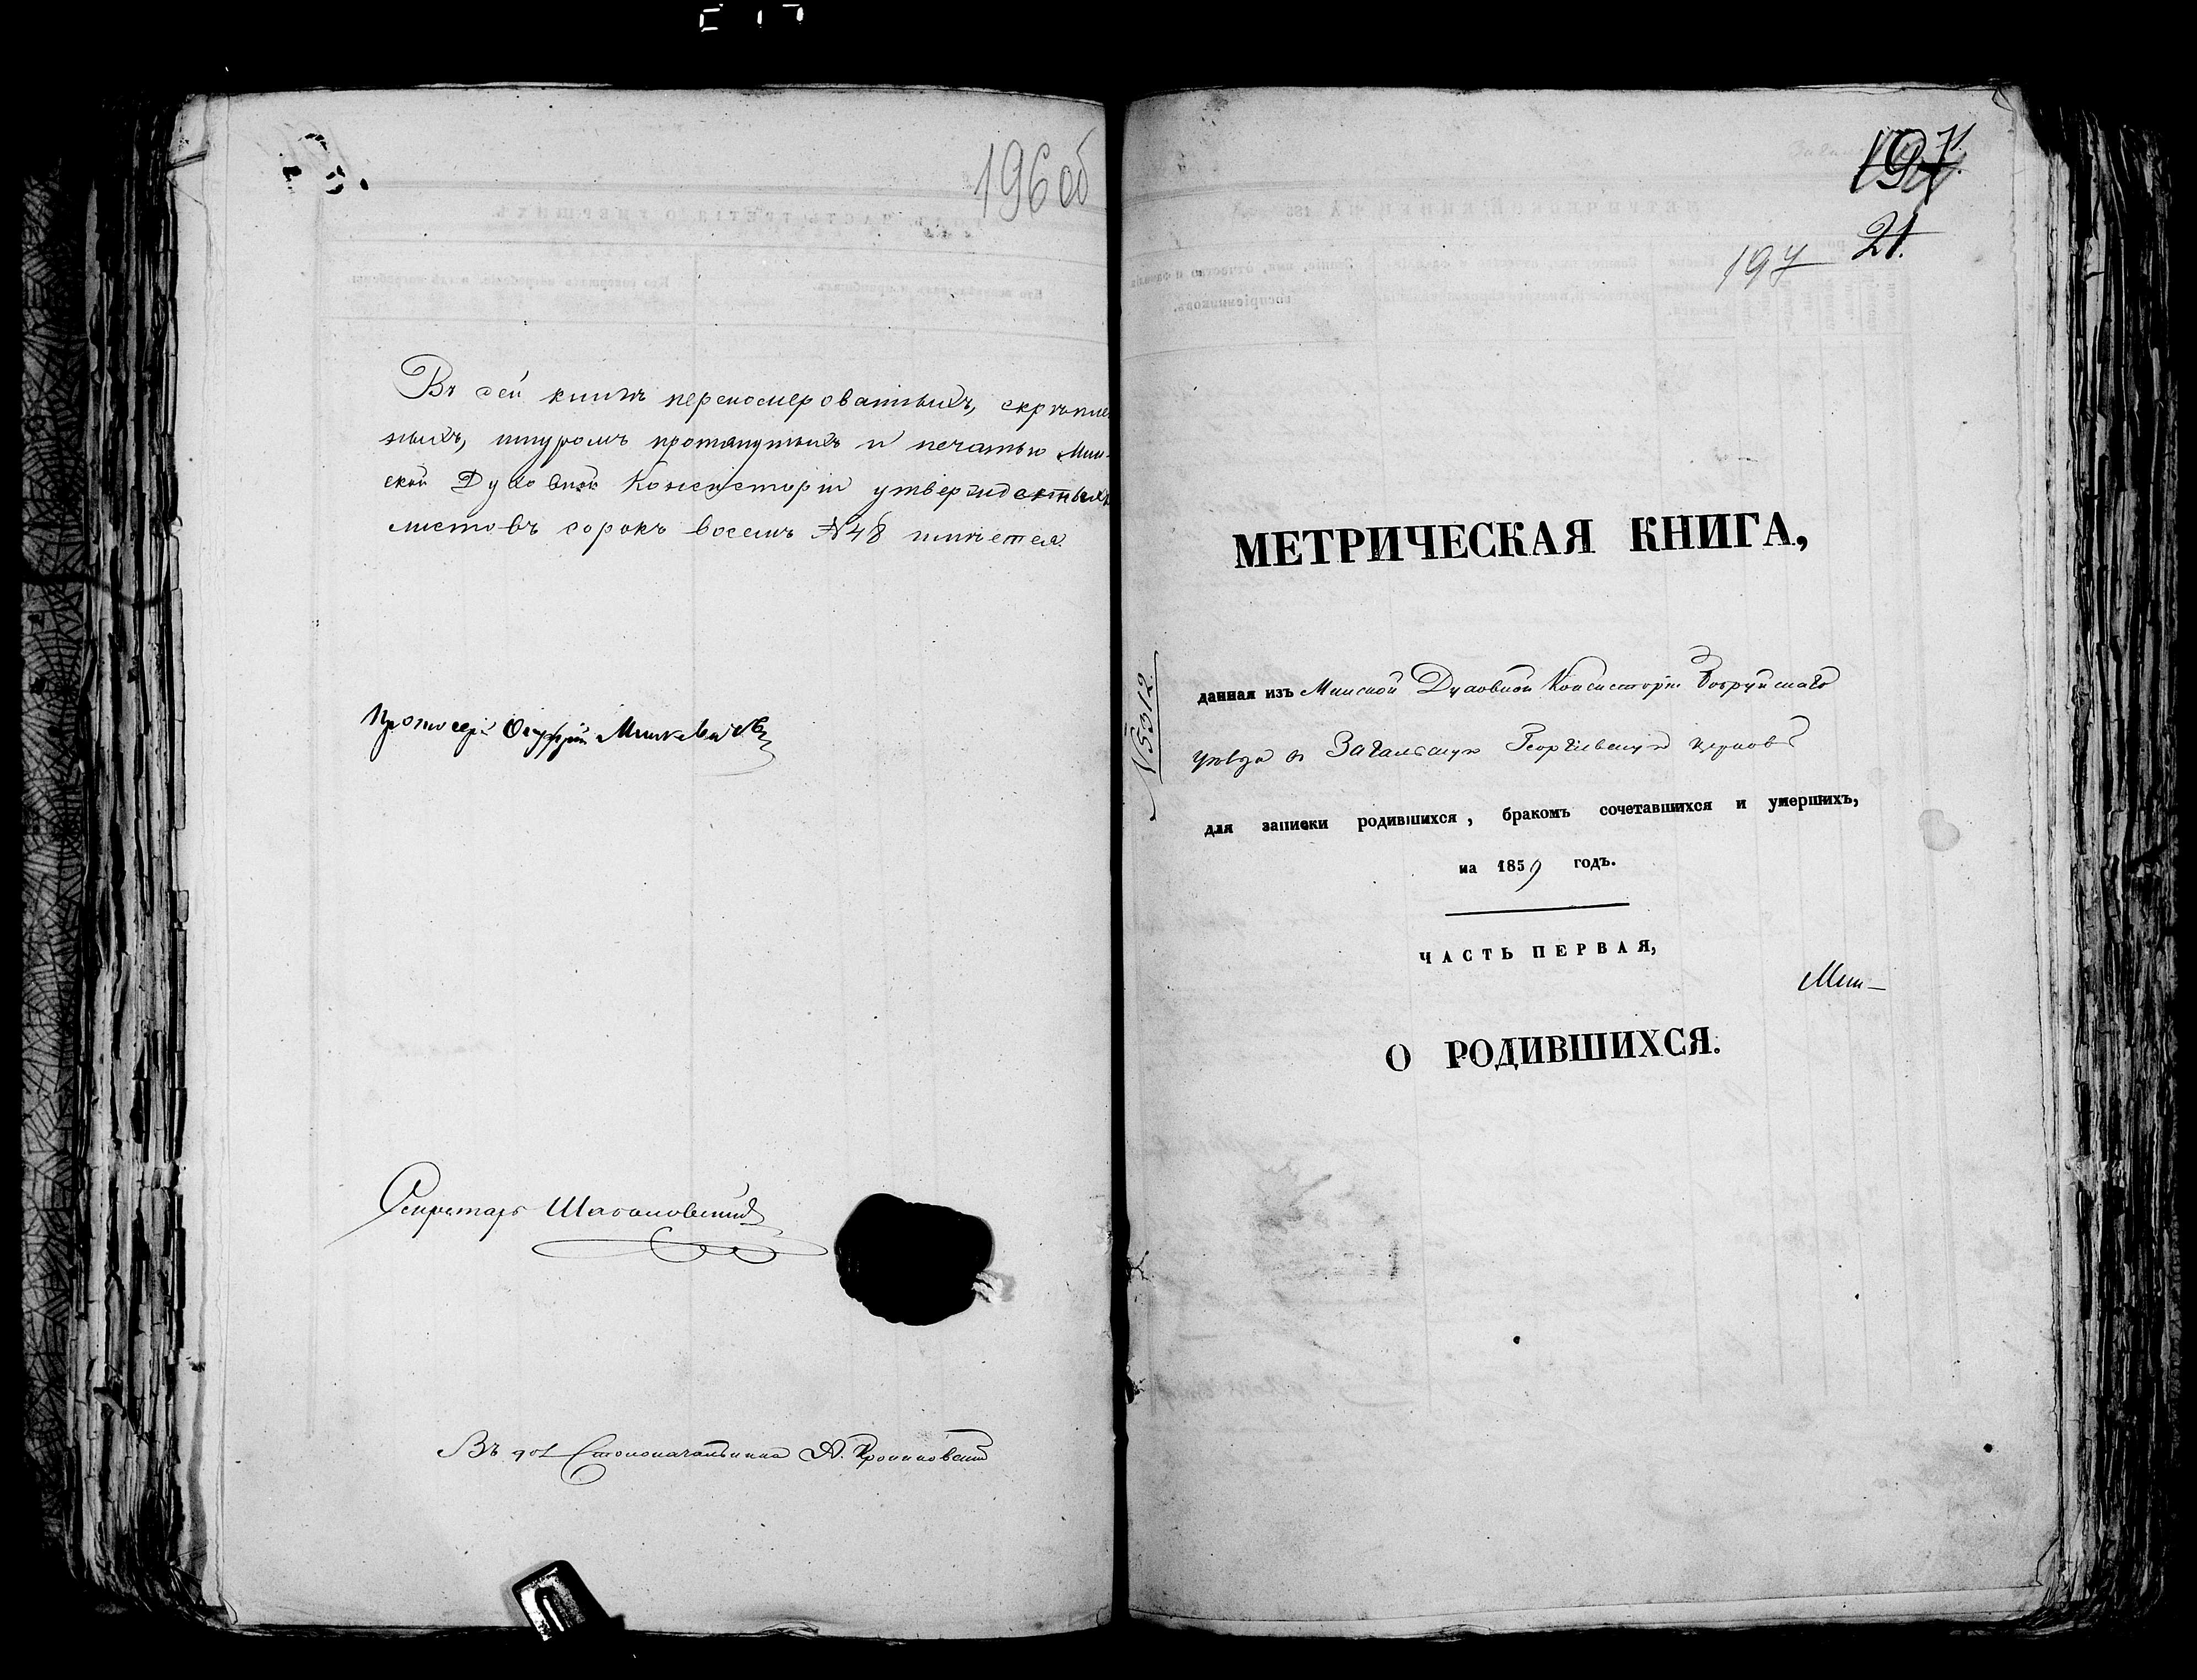 196 об
Въ сей книгѣ перенумерованныхъ, скрѣплен
ныхъ, шнуромъ протянутыхъ и печатью Мин-
ской Духовной Консисторіи утвержденныхъ
листовъ сорокъ восемь №48 имѣется.
Протоіерей Минкевичъ
Секретарь
Въ дол. Столоначальника А.
197
21.
197
МЕТРИЧЕСКАЯ КНИГА,
№5312
данная изъ Минской Духовной Консисторіи Бобруйскаго
уѣзда въ Загальскую Георгіевскую церковь
для записки родившихся, бракомъ сочетавшихся и умершихъ,
на 1859 годъ.
ЧАСТЬ ПЕРВАЯ,
Мин-
О РОДИВШИХСЯ.